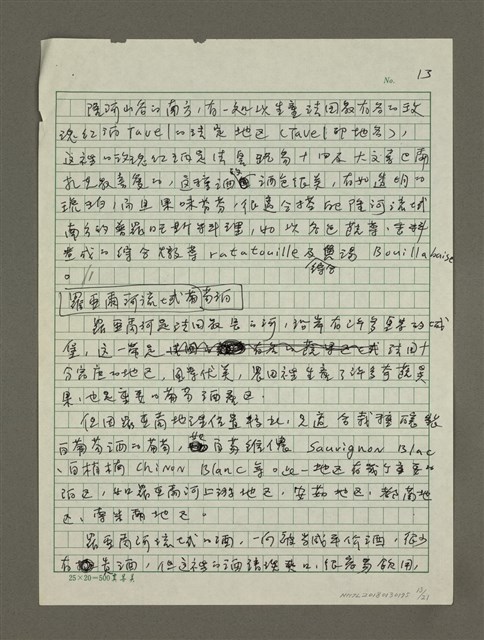 No. 13
隆河山谷的南方,有一處以生產法國最有名的玫
瑰紅酒Tavel的法定地區(Tavel即地名),
這裡的玫瑰紅酒是法皇路易十四及大文豪巴爾
扎克最喜愛的,這種酒酒色很美,有如透明的
琥珀,而且果味芬芳,很適合搭配隆河流域
南方的普羅旺斯料理,如以各色蔬菜、香料
煮成的綜合燉菜ratatouille及魚湯Bouillabaisse
。
羅亞爾河流域葡萄酒
羅亞爾河是法國最長的河,沿岸有許多皇室的城
堡,這一帶是法國十
分富庶的地區,風景優美,農田裡生產了許多蔬菓
果,也是重要的葡萄酒產區。
但因羅亞爾地理位置特北,只適合栽種釀製
白葡萄酒的葡萄,如白蘇維儂Sauvignon Blac
、白梢楠Chinon Blanc等。這一地區有幾個重要的
酒區,如羅亞爾河上游地區,安茹地區,都蘭地
區、南生爾地區。
羅亞爾河流域的酒,一向雖當成平價酒,很少
有貴酒,但這裡的酒清淡爽口,很容易飲用,
25×20=500
13/21